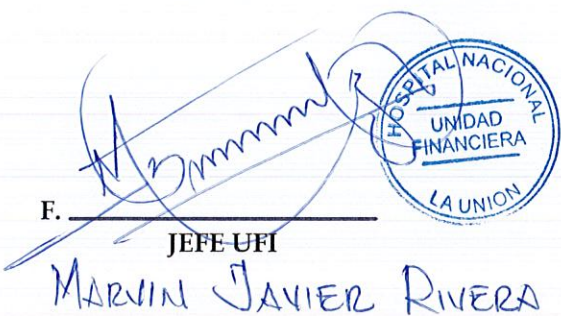 HOSPITAL NACIONAL
UNIDAD
FINANCIERA
LA UNION
F.
JEFE UFI
MARVIN JAVIER RIVERA